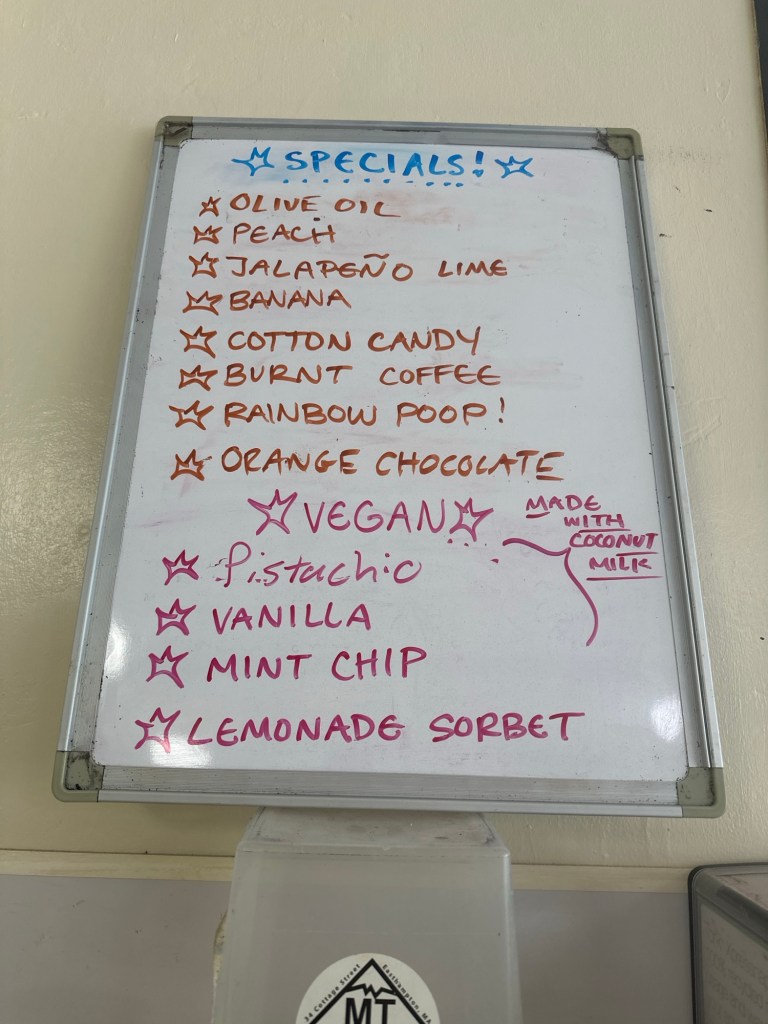 SPECIALS!
OLIVE OIL
PEACH
JALAPEÑO LIME
BANANA
COTTON CANDY
BURNT COFFEE
RAINBOW POOP!
ORANGE CHOCOLATE
VEGAN
MADE
WITH
COCONUT
MILK
Pistachio
VANILLA
MINT CHIP
LEMONADE SORBET
34 Cottage Street
Easthampton, MA
MT